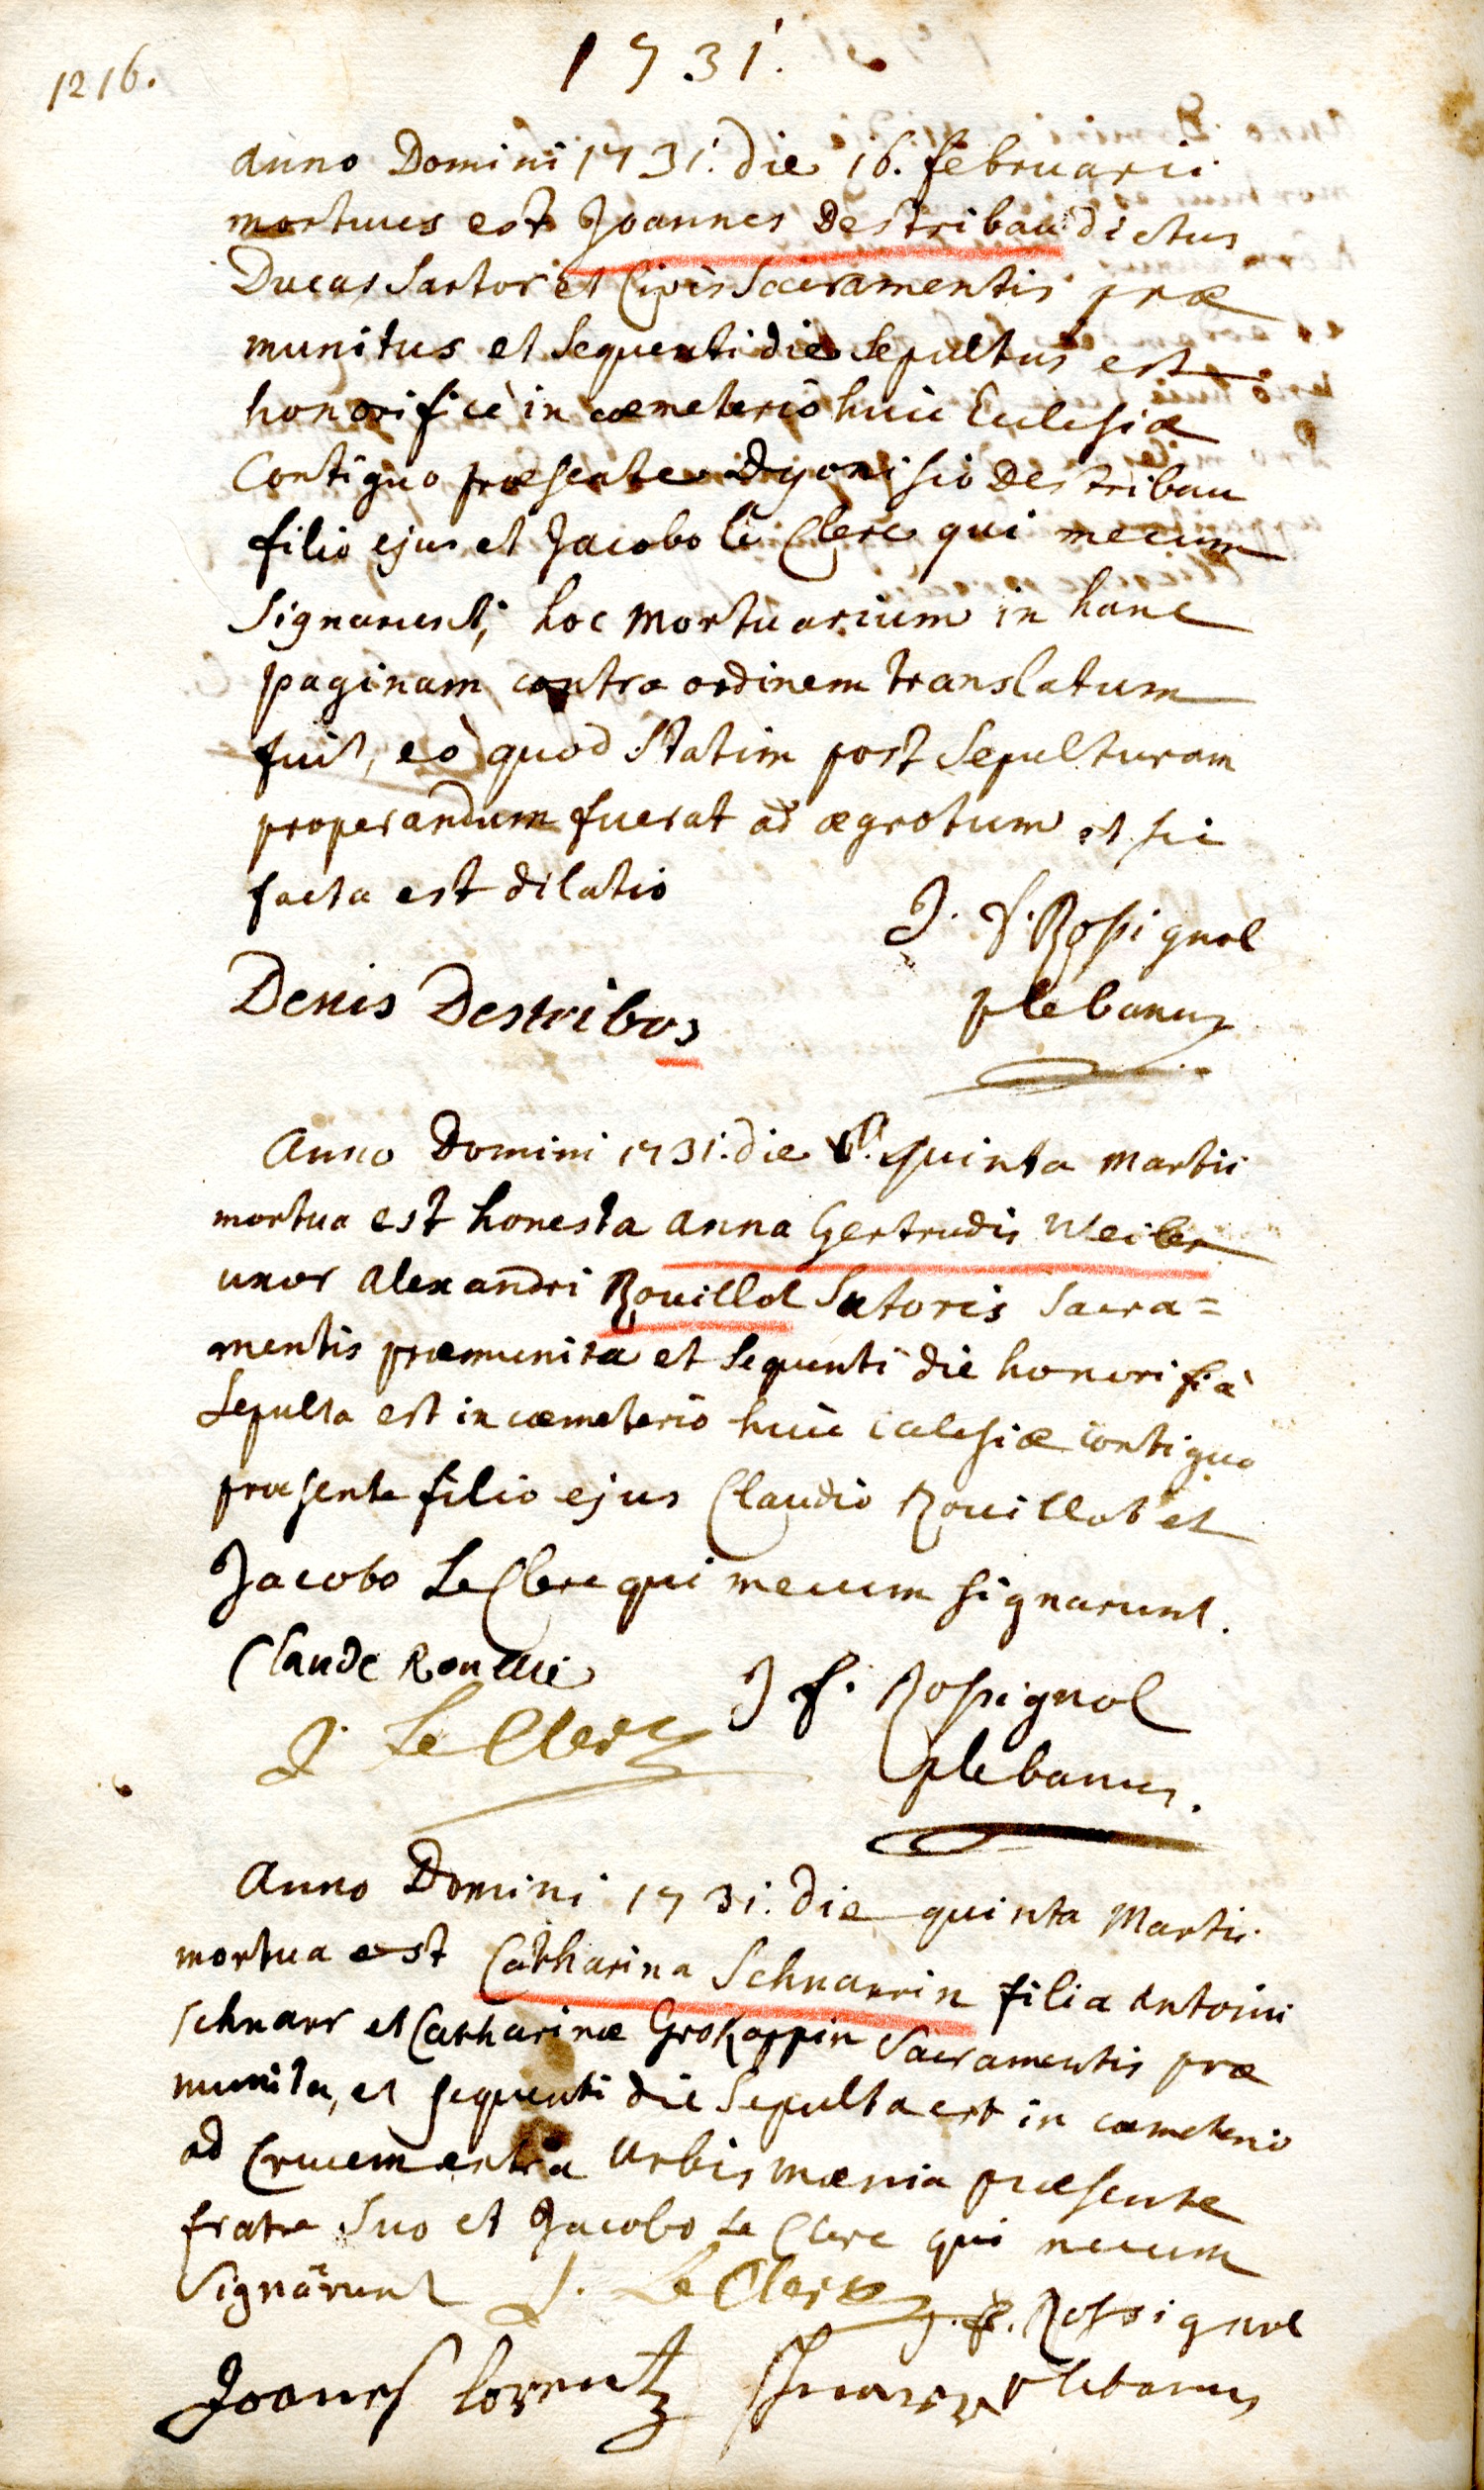 1216.
1731.
Anno Domini 1731. die 16. februarii
mortuus est Joannes Destribau dictus
Ducas Sartor et Civis Sacramentis præ
munitus et sequenti die sepultus est
honorificè in cæmeterio huic Ecclesiæ
Contiguo præsente dyonisio Destribau
filio ejus et Jacobo le Clerc qui mecum
signarunt, hoc mortuarium in hanc
paginam contra ordinem translatum
fuit, eò quod statim post sepulturam
properandum fuerat ad ægrotum et sic
facta est dilatio
J. f. Rossignol
plebanus
Denis Destribos
Anno Domini 1731. die quinta martii
mortua est honesta anna Gertrudis Weiler
uxor alexandri Rouillot Sutoris Sacra=
mentis præmunita et sequenti die honorificè
sepulta est in cæmeterio huic ecclesiæ contiguo
præsente filio ejus Claudio Rouillot et
Jacobo Le Clerc qui mecum signarunt.
Claude
J. Le Clerc
J f. Rossignol
plebanus.
Anno Domini 1731. die quinta Martii
mortua est Catharina Schnarrin filia Antonii
schnarr et Catharinæ Grokoppin Sacramentis præ
munita, et sequenti die sepulta est in cæmeterio
ad Crucem extra urbis mænia præsente
fratre suo et Jacobo Le Clerc qui mecum
signârunt
J. Le Clerc
J. f. Rossignol
plebanus
Joanes lorentz schnarr